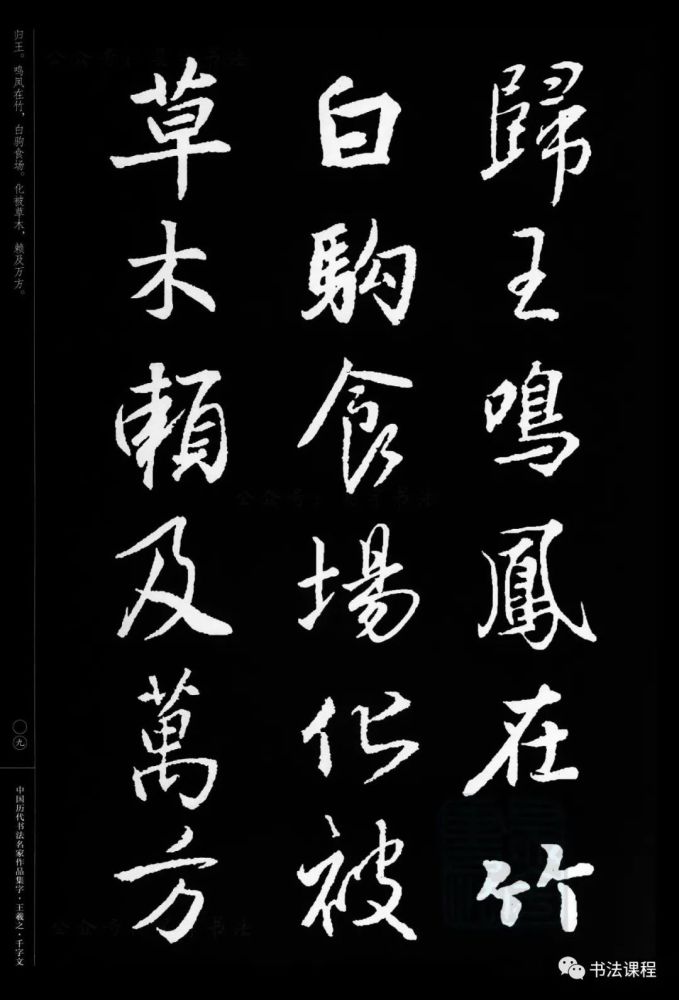 歸王鳴鳳在竹
白駒食場化被
草木賴及萬方
归王。鸣凤在竹，白驹食场。化被草木，赖及万方。
〇九
中国历代书法名家作品集字·王羲之·千字文
书法课程